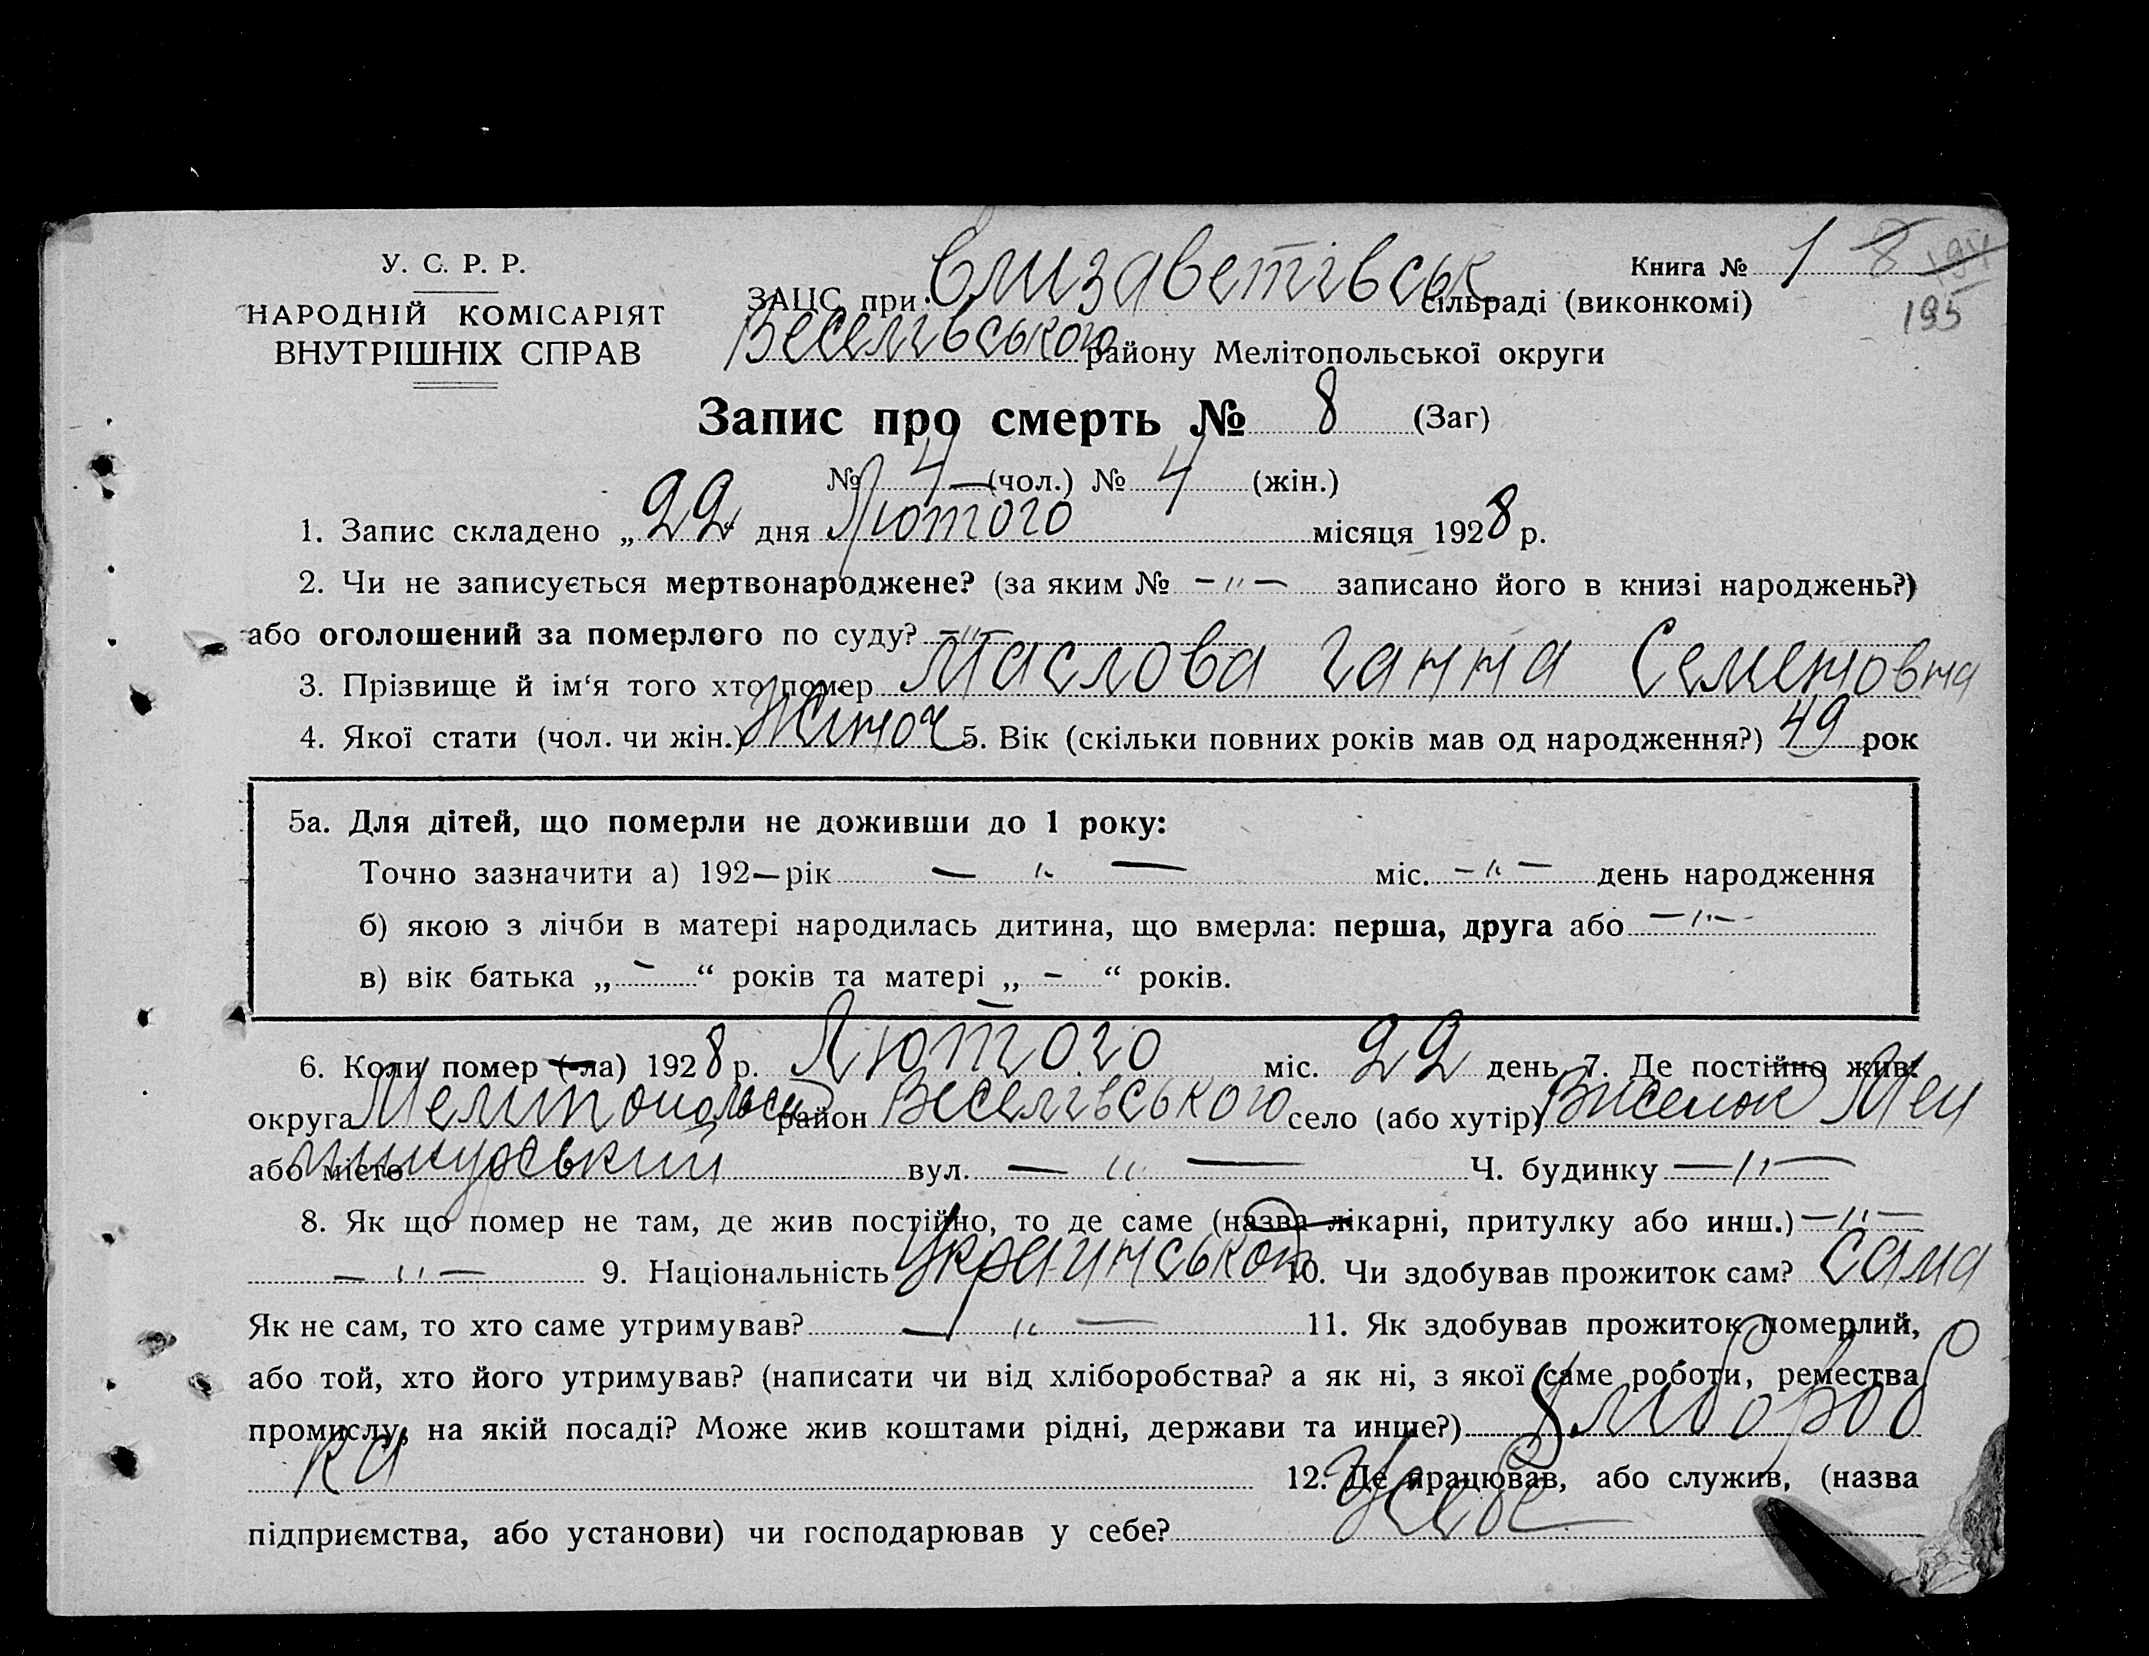 У. С. Р. Р.
НАРОДНІЙ КОМІСАРІЯТ
ВНУТРІШНІХ СПРАВ
Книга № 1 8 194
195
ЗАЦС при Єлизаветівськ сільраді (виконкомі)
Веселівського району Мелітопольської округи
Запис про смерть № 8 (Заг)
№ 4 — (чол.) № 4 (жін.)
1. Запис складено „ 22 " дня Лютого місяця 1928 р.
2. Чи не записується мертвонароджене? (за яким № — " — записано його в книзі народжень?)
або оголошений за померлого по суду? — " —
3. Прізвище й ім'я того хто помер Маслова Ганна Семеновна
4. Якої стати (чол. чи жін.) Жіноч 5. Вік (скільки повних років мав од народження?) 49 рок
5а. Для дітей, що померли не доживши до 1 року:
Точно зазначити а) 192— рік — " — міс. — " — день народження
б) якою з лічби в матері народилась дитина, що вмерла: перша, друга або — " —
в) вік батька „ — “ років та матері „ — “ років.
6. Коли помер (-ла) 1928 р. Лютого міс. 22 день 7. Де постійно жив:
округа Мелитопольськ район Веселівського село (або хутір) Виселок
або місто вул. — " — Ч. будинку — " —
8. Як що помер не там, де жив постійно, то де саме (назва лікарні, притулку або инш.) — " —
— " — 9. Національність Украинської 10. Чи здобував прожиток сам? сама
Як не сам, то хто саме утримував? — " — 11. Як здобував прожиток померлий,
або той, хто його утримував? (написати чи від хліборобства? а як ні, з якої саме роботи, ремества,
промислу, на якій посаді? Може жив коштами рідні, держави та инше?) Хлібороб
ка 12. Де працював, або служив, (назва
підприємства, або установи) чи господарював у себе? У себе